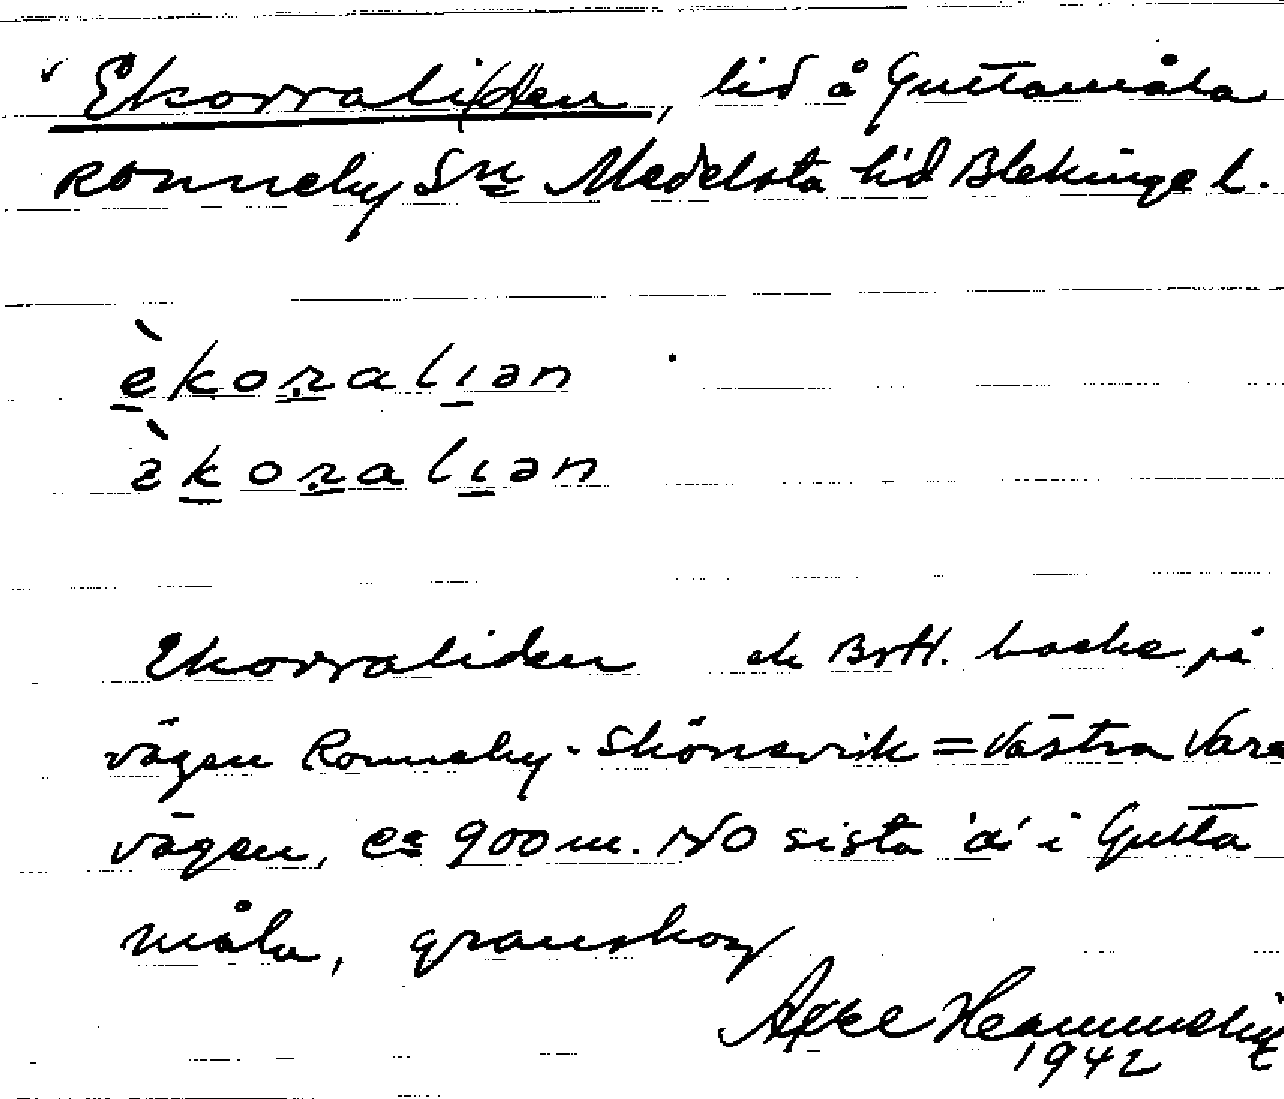 Ekorraliden, lid å Guttamåla
Ronneby Sn Medelsta hd Blekinge l.
èkoralıən
àkoralıən
Ekorraliden ek Brtt. backe på
vägen Ronneby - Skönevik = Västra Vare
vägen, ca 900 m. NO sista 'a' i Gutta
måla, granskog
Axel
1942